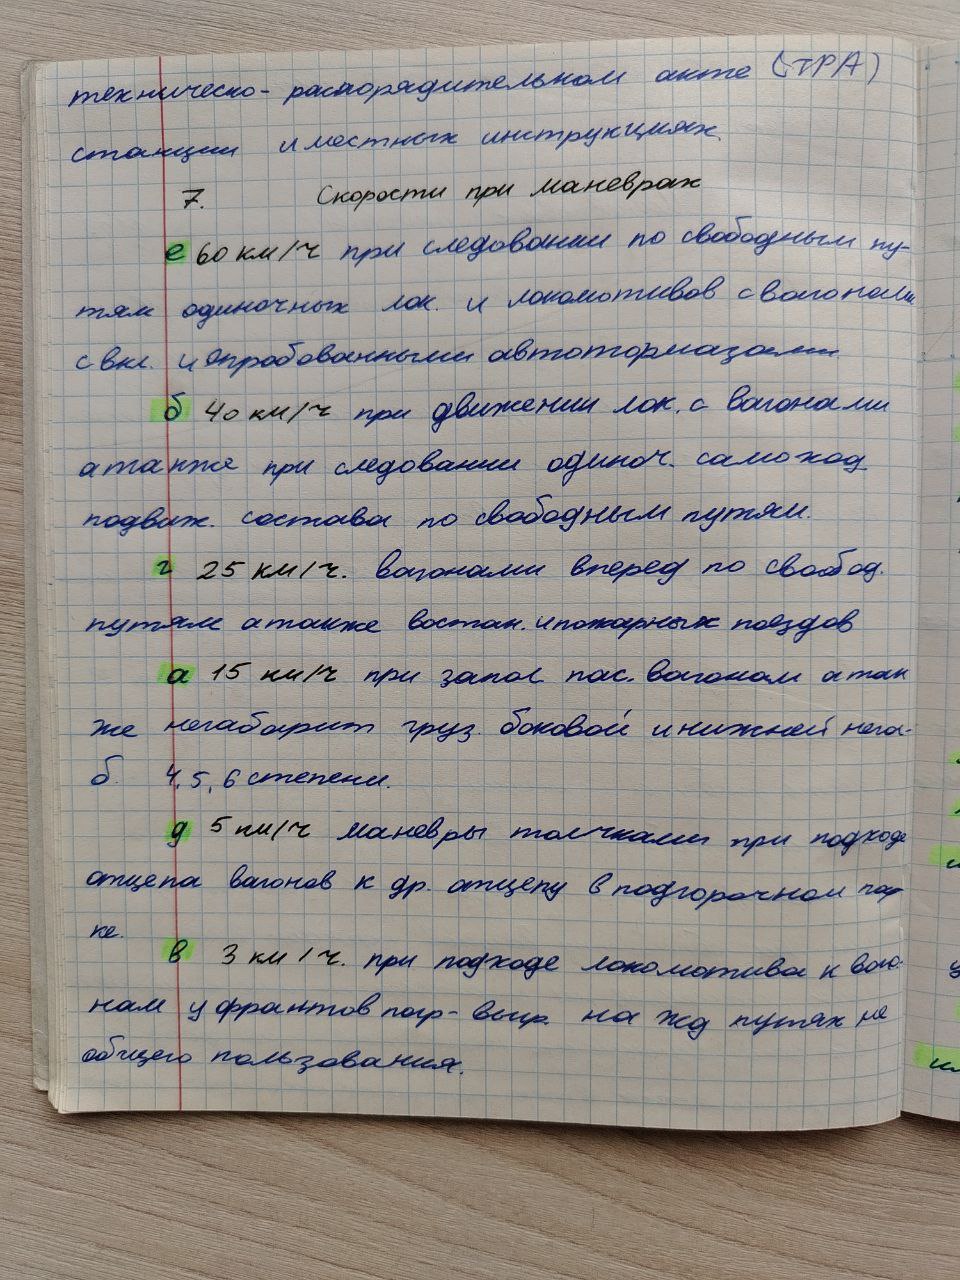 техническо-распорядительном акте (ТРА)
станции и местных инструкциях.
7. Скорости при маневрах
е 60 км/ч при следовании по свободным пу-
тям одиночных лок. и локомотивов с вагонами
с вкл. и опробованными автотормазами
б 40 км/ч при движении лок. с вагонами
а также при следовании одиноч. самоход
подваж. состава по свободным путям.
г 25 км/ч. вагонами вперед по свобод.
путям а также востан. и пожарных поездов
а 15 км/ч при запол пас. вагонам а так
же негабарит груз. боковой и нижней нега-
б. 4, 5, 6 степени.
д 5 км/ч маневры толчками при подходе
отцепа вагонов к др. отцепу в подгорочном пар
ке.
в 3 км/ч. при подходе локомотива к ваго-
нам у франтов погр-выгр. на жд путях не
общего пользования.